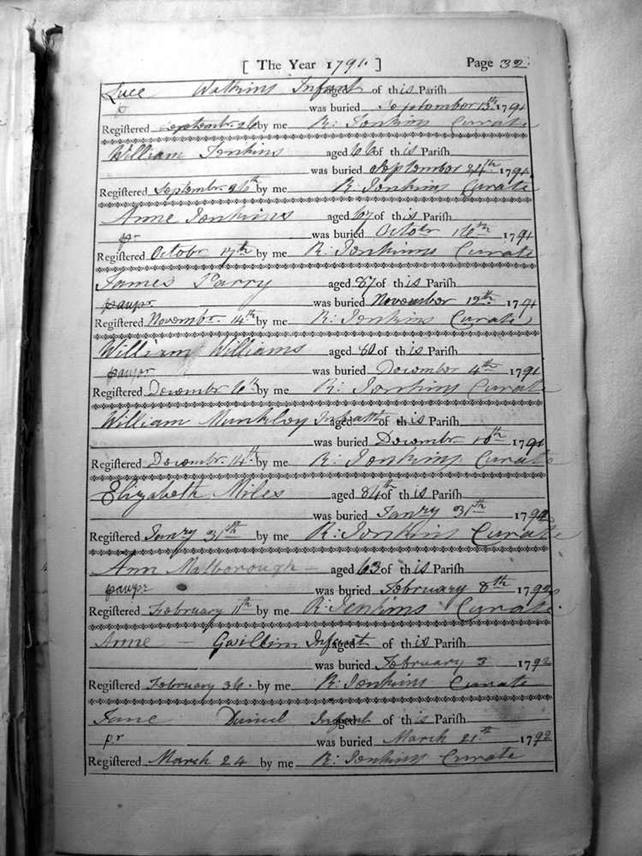 [ The Year 1791. ] Page 32.
Luce Watkins Infant aged of this Parish
was buried September 13th 1791
Registered September 26 by me R: Jenkins Curate
William Jenkins aged 66 of this Parish
was buried September 24th 1791
Registered September 26th by me R Jenkins Curate
Anne Jenkins aged 67 of this Parish
pr was buried October 16th 1791
Registered October 17th by me R: Jenkins Curate
James Parry aged 87 of this Parish
paupr was buried November 12th 1791
Registered Novembr 14th by me R: Jenkins Curate
William Williams aged of this Parish
paupr was buried December 4th 1791
Registered December 6th by me R: Jenkins Curate
William Munkley Infant aged of this Parish
was buried Decembr 10th 1791
Registered Decembr 14th by me R: Jenkins Curate
Elizabeth Miles aged 84 of this Parish
was buried Janry 31th 1792
Registered Janry 31th by me R: Jenkins Curate
Ann Malborough aged 63 of this Parish
paupr was buried February 8th 1792
Registered February 11th by me R: Jenkins Curate.
Anne Gwillim Infant aged of this Parish
was buried February 3 1792
Registered February by me R: Jenkins Curate
Jane Infant aged of this Parish
pr was buried March 21th 1792
Registered March 24 by me R: Jenkins Curate